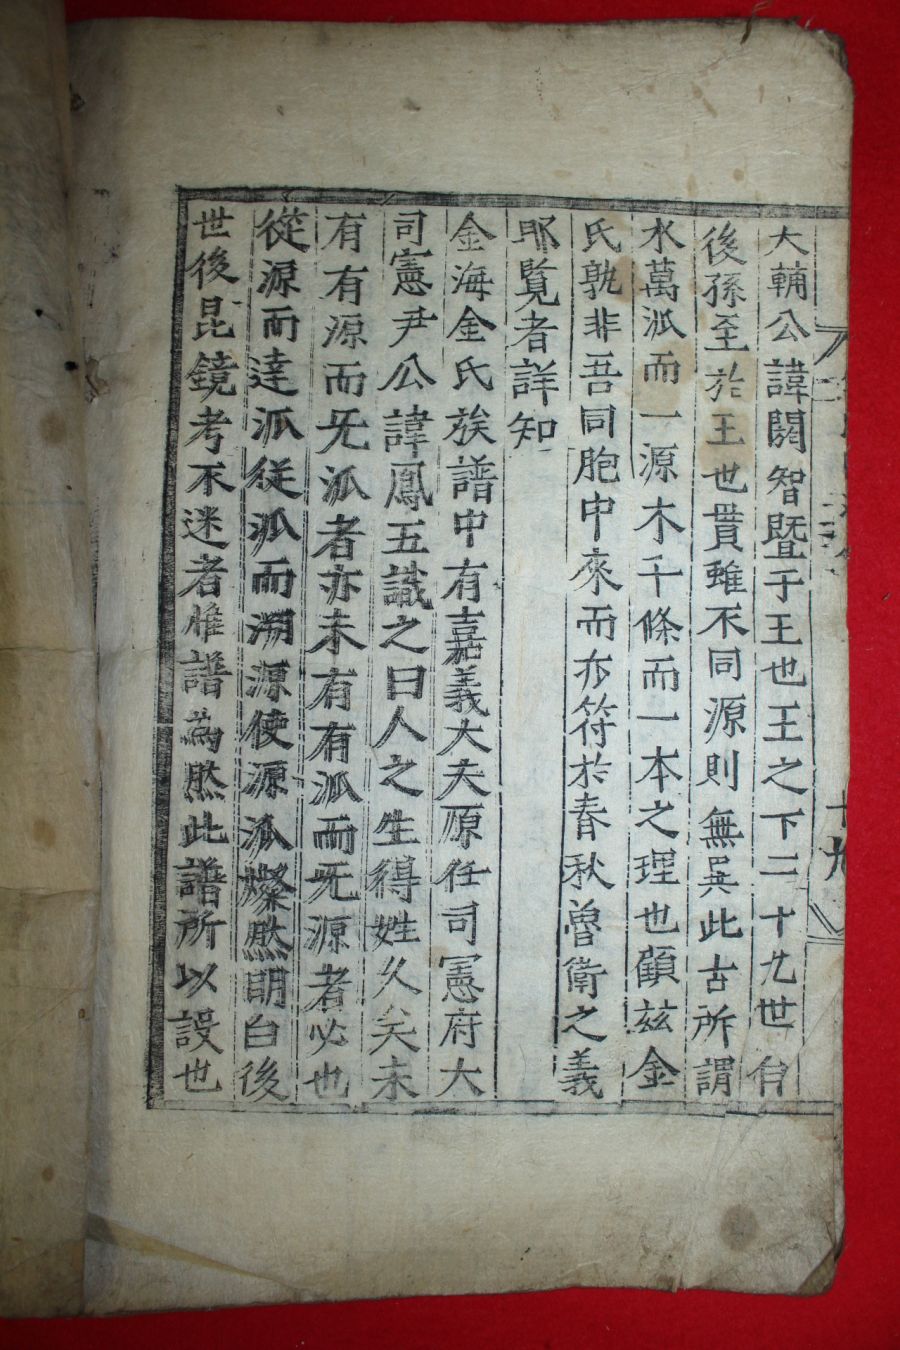 大輔公諱閼智曁于王也王之下二十九世台
後孫至於王世貫雖不同源則無異此古所謂
水萬派而一源木千條而一本之理也顧玆金
氏孰非吾同胞中來而亦符於春秋魯衛之義
耶覧者詳知
金海金氏族譜中有嘉義大夫原任司憲府大
司憲尹公諱鳳五識之曰人之生得姓久矣未
有有源而旡派者亦未有有派而旡源者必也
從源而達派從派而溯源使源派燦然明白後
世後昆鏡考不迷者惟譜為然此譜所以設也
十九